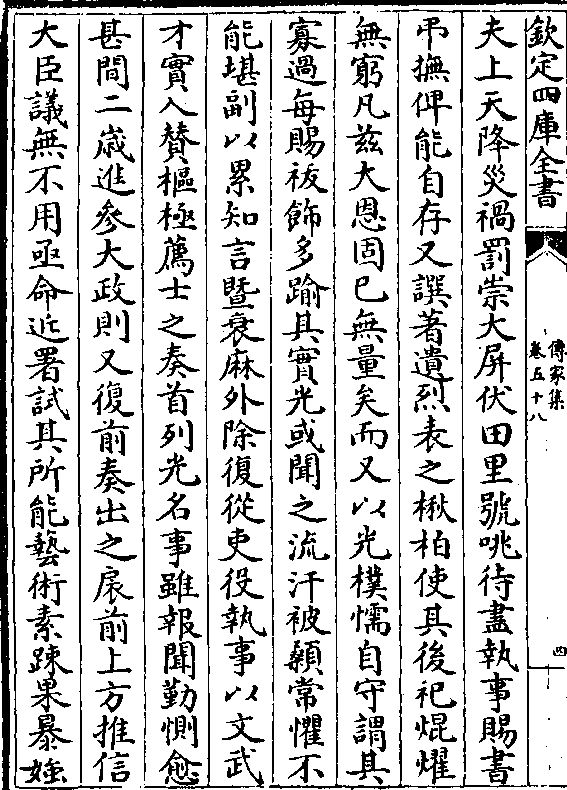 欽定四庫全書
傳家集
卷五十八
四
夫上天降災禍罰崇大屏伏田里號咷待盡執事賜書
弔撫俾能自存又譔著遺烈表之楸柏使其後祀焜燿
無窮凡兹大恩固已無量矣而又以光樸懦自守謂其
寡過每賜祓飾多踰其實光或聞之流汗被顙常懼不
能堪副以累知言暨衰麻外除復從吏役執事以文武
才實入賛樞極薦士之奏首列光名事雖報聞勤惻愈
甚間二歲進參大政則又復前奏出之扆前上方推信
大臣議無不用亟命近署試其所能藝術素踈果暴媸